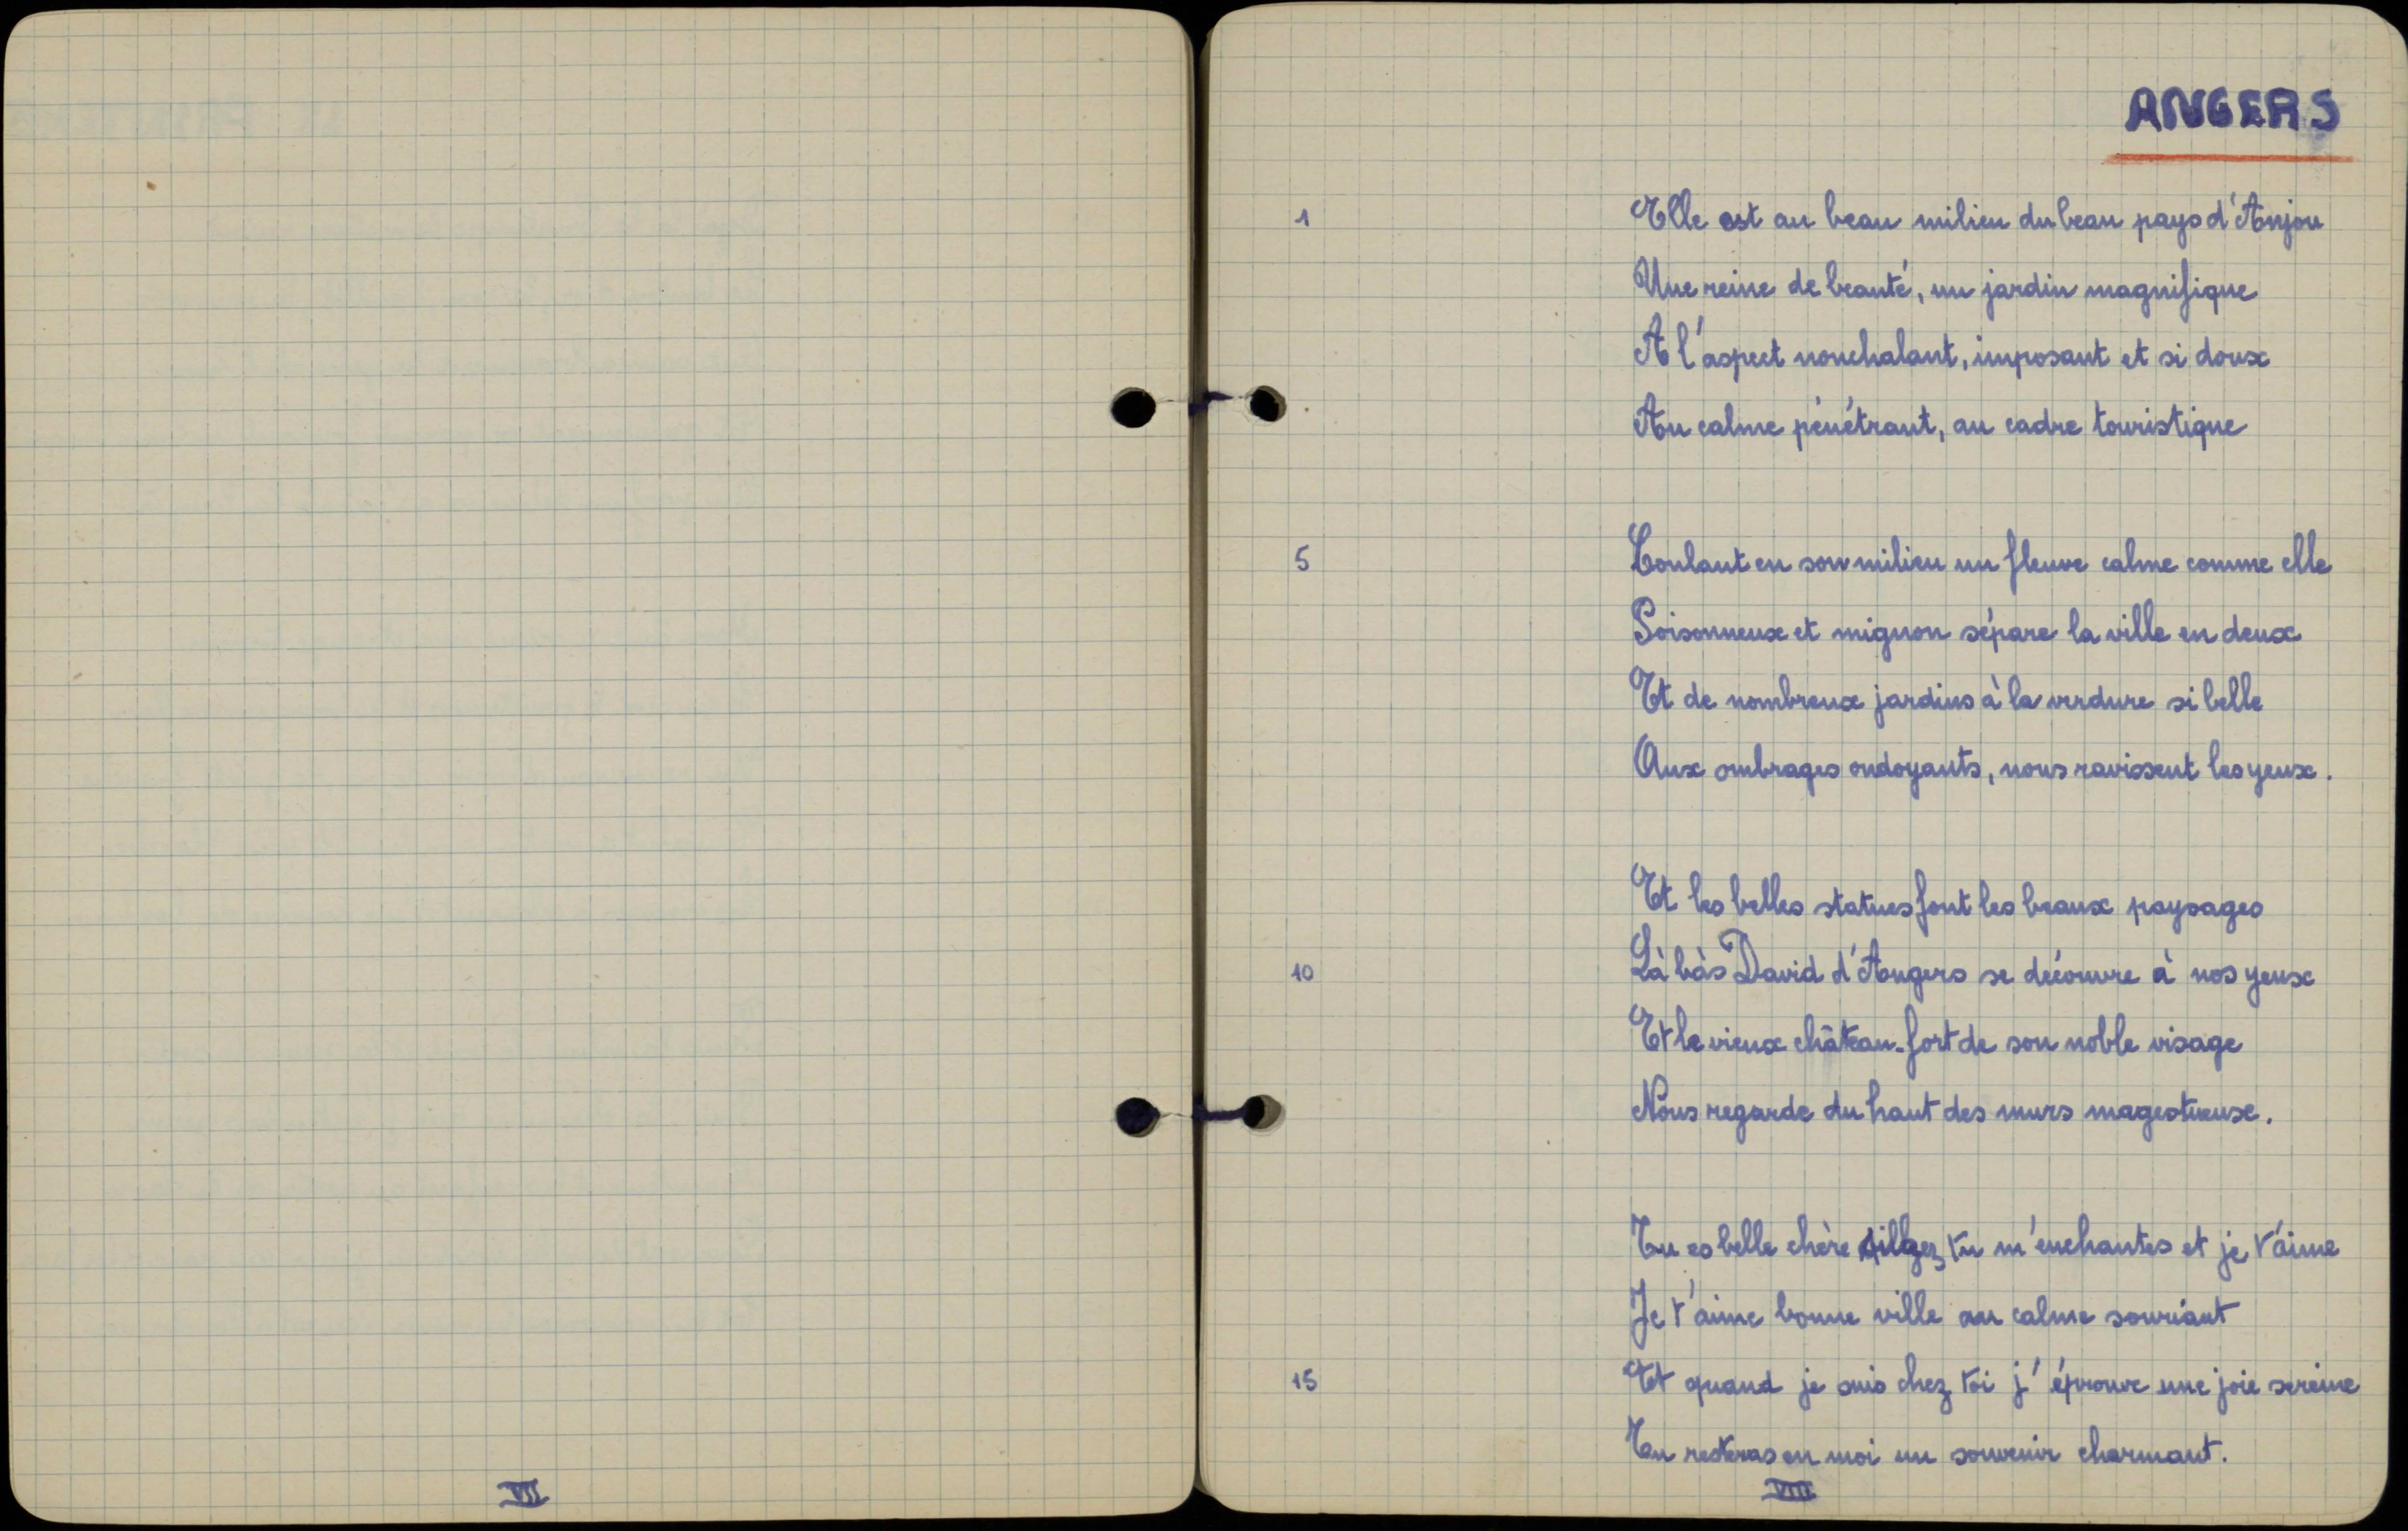 ANGERS
1 Elle est au beau milieu du beau pays d'Anjou
Une reine de beauté, un jardin magnifique
A l'aspect nonchalant, imposant et si doux
Au calme pénétrant, au cadre touristique
5 Coulant en son milieu un fleuve calme comme elle
Poisonneux et mignon sépare la ville en deux
Et de nombreux jardins à la verdure si belle
Aux ombrages ondoyants, nous ravissent les yeux.
Et les belles statues font les beaux paysages
10 Là bàs David d'Angers se découvre à nos yeux
Et le vieux château-fort de son noble visage
Nous regarde du haut des murs magestueux.
Tu es belle chère tu m'enchantes et je t'aime
Je t'aime bonne ville au calme souriant
15 Et quand je suis chez toi j'éprouve une joie sereine
Tu resteras en moi un souvenir charmant.
VII
VIII